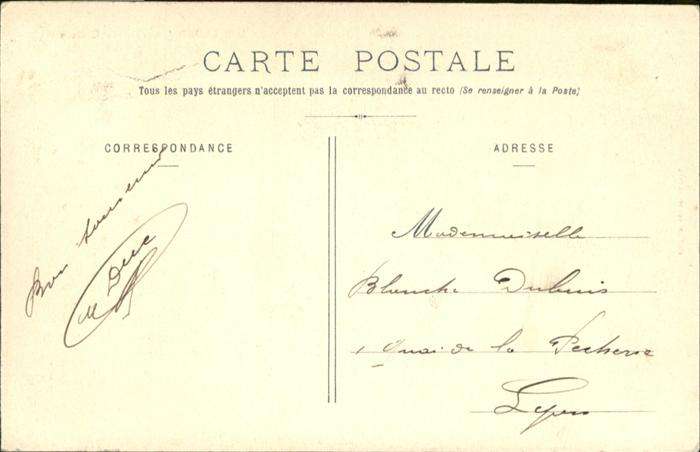 CARTE POSTALE
Tous les pays étrangers n'acceptent pas la correspondance au recto (Se renseigner à la Poste)
CORRESPONDANCE
Bon souvenir
M Duc
ADRESSE
Mademoiselle
Blanche Dubuis
1 Quai de la Pecherie
Lyon